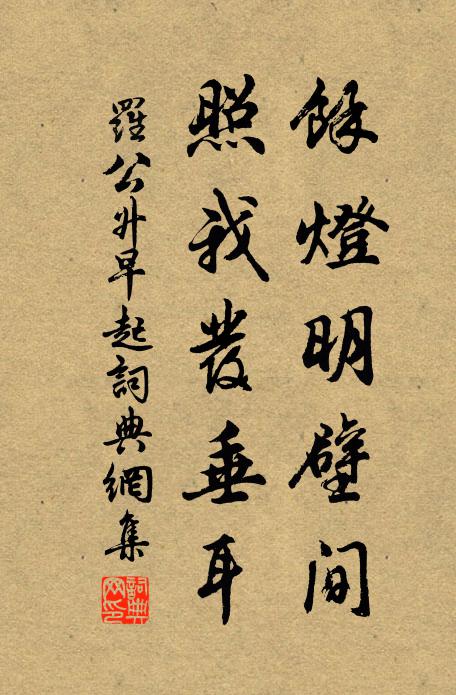 餘燈明壁间
照我發垂耳
羅公升早起詞典網集
詞典
网印